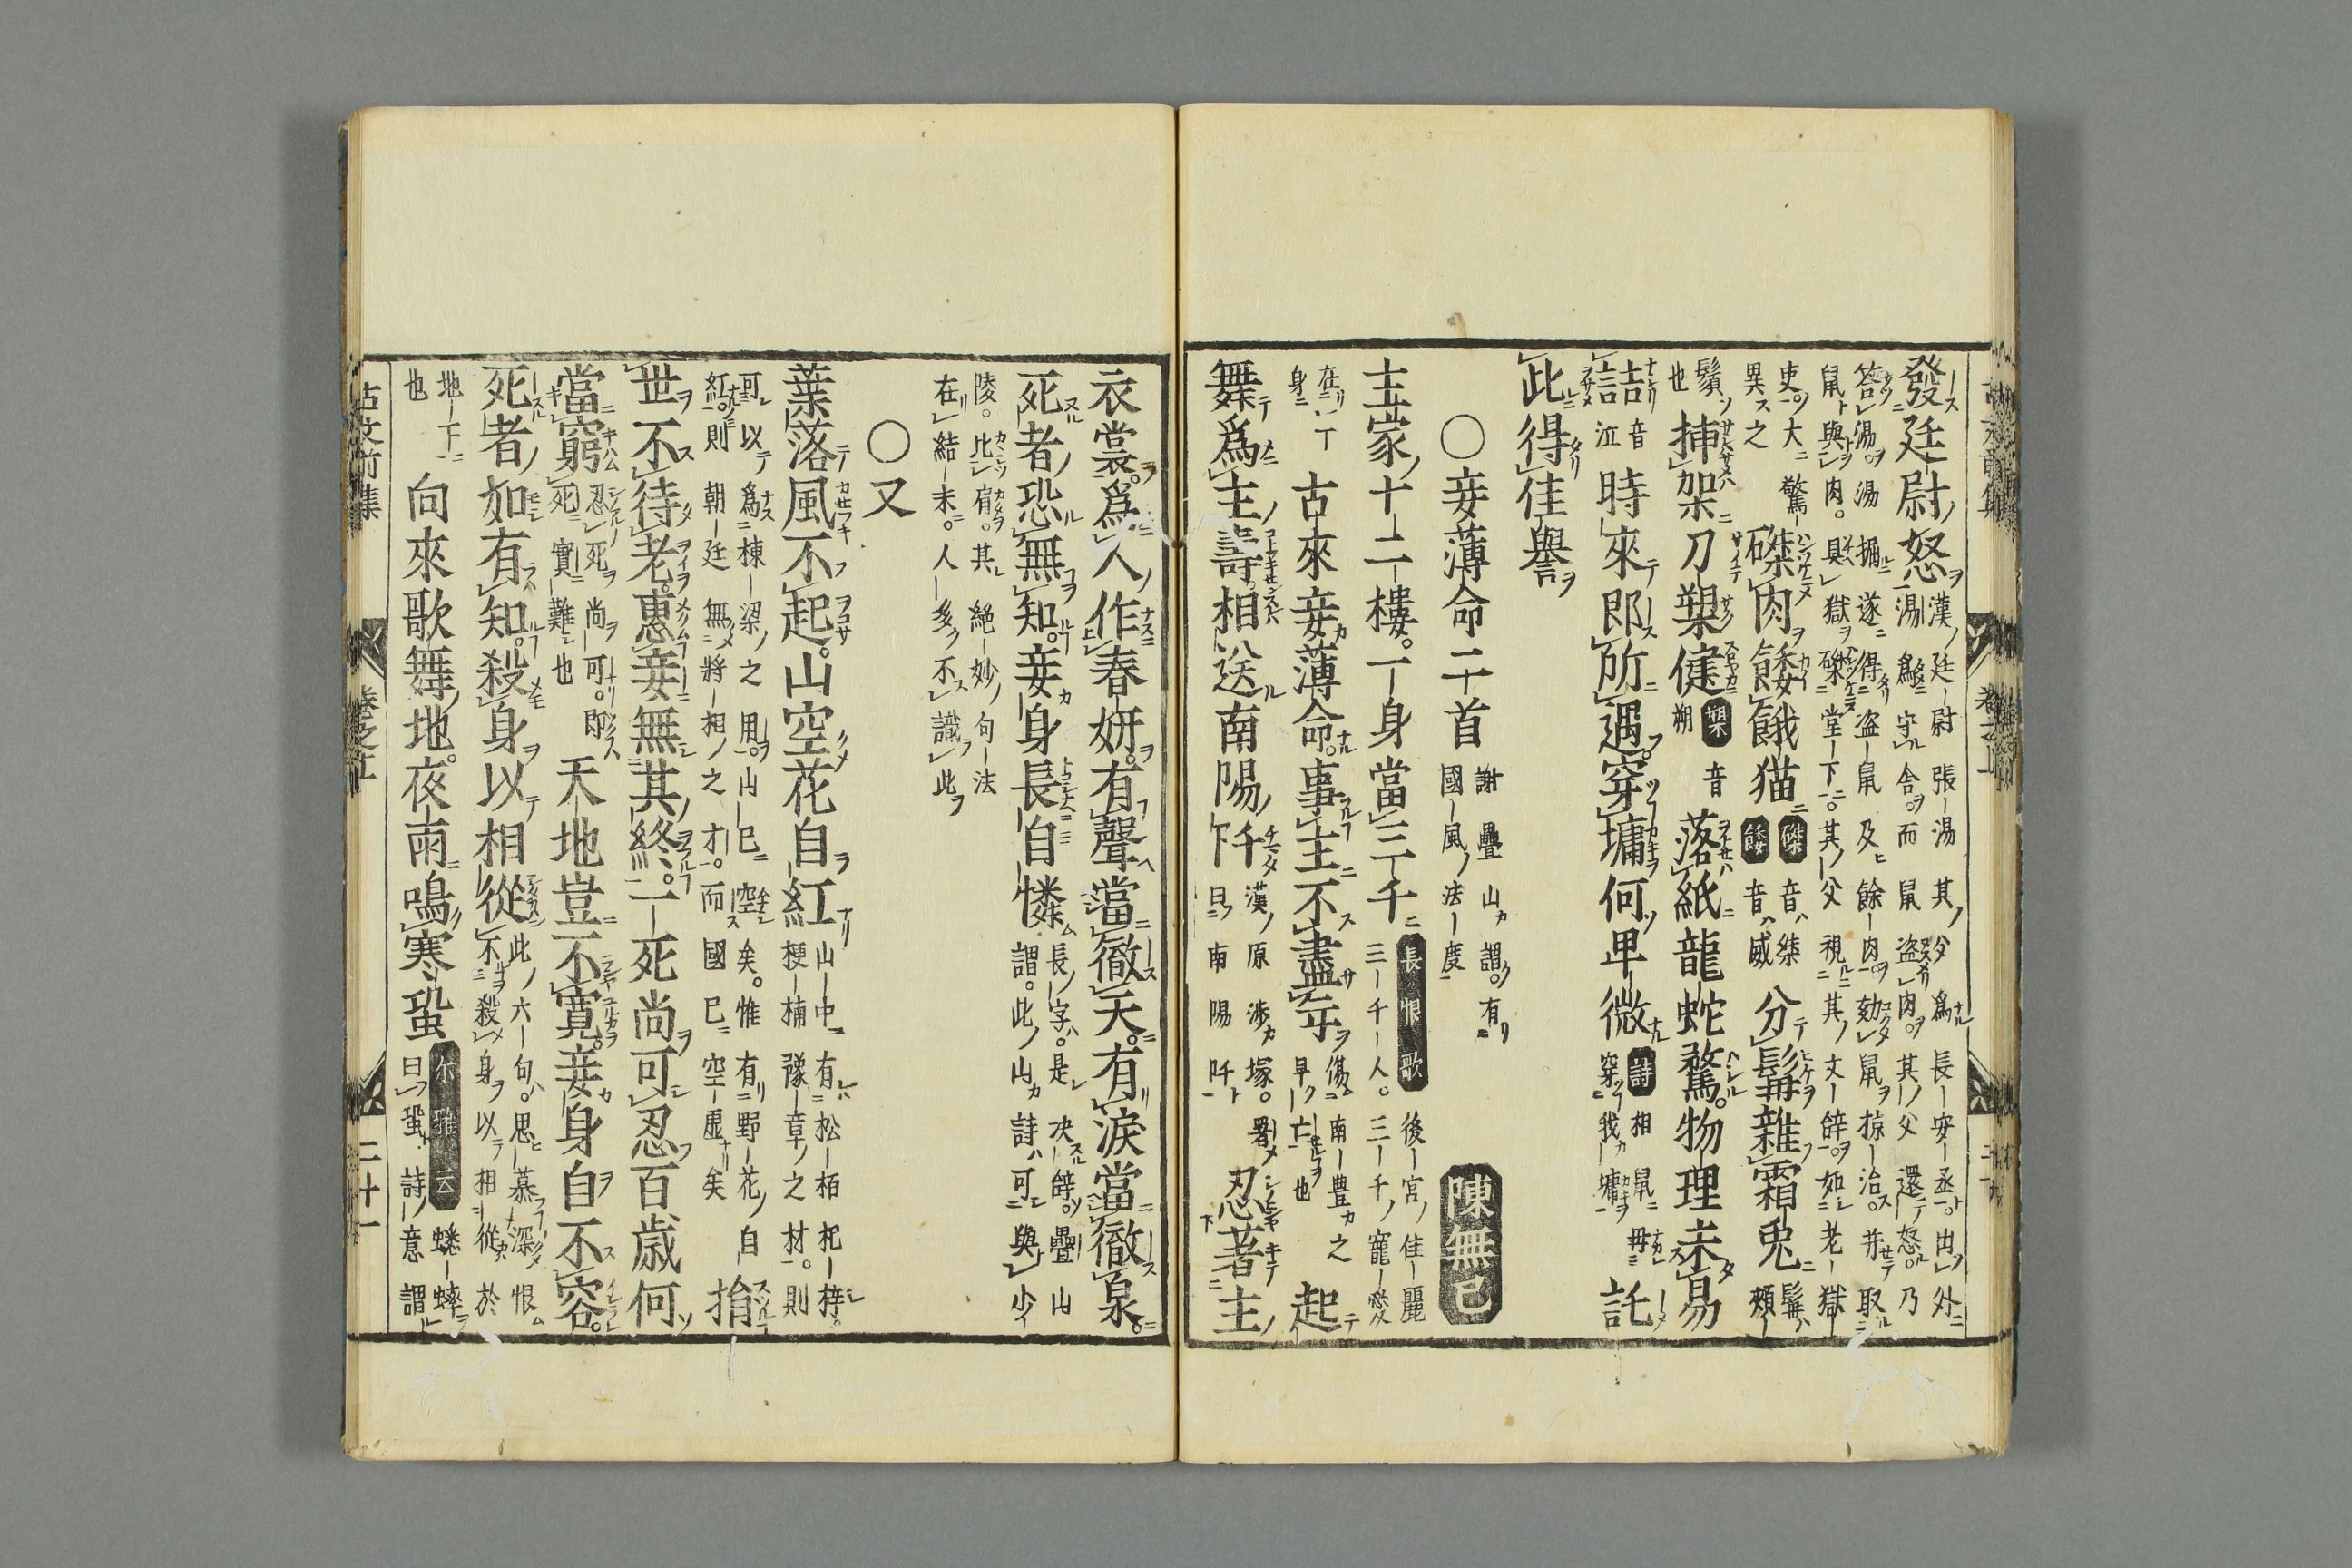 發廷尉怒漢廷尉張湯其父爲長安丞出外湯爲守舍而鼠盗肉其父還怒乃
笞湯湯掘遂得盗鼠及餘肉劾鼠掠治并取鼠與肉具獄磔堂下其父視其文辭如老獄
吏大驚異之磔肉餧餓猫磔音桀餧音威分髯雜霜兎髯頰
鬚也挿架刀槊健槊音朔落紙龍蛇騖物理未易
詰詰音泣時來即所遇穿墉何卑微詩相鼠毋穿我墉託
此得佳譽
○妾薄命二首謝疊山謂有國風法度陳無己
主家十二樓一身當三千長恨歌後宮佳麗三千人三千寵愛
在一身古來妾薄命事主不盡年傷南豊之早亡也起
舞爲主壽相送南陽阡漢原渉塚署曰南陽阡忍著主
衣裳爲人作春妍有聲當徹天有淚當徹泉
死者恐無知妾身長自憐長字是决辭疊山謂此山詩可與少
陵比肩其絶妙句法在結末人多不識此
○又
葉落風不起山空花自紅山中有松栢杞梓梗楠豫章之材則
可以爲棟梁之用山已空矣惟有野花自紅則朝廷無將相之才而國已空虚矣捐
世不待老惠妾無其終一死尚可忍百歳何
當窮忍死尚可即死實難也天地豈不寛妾身自不容
死者如有知殺身以相從此六句思慕深恨不殺身以相從於
地下也向來歌舞地夜雨鳴寒蛩尔雅云蟋蟀曰蛩詩意謂
古文前集
卷之上
二十一